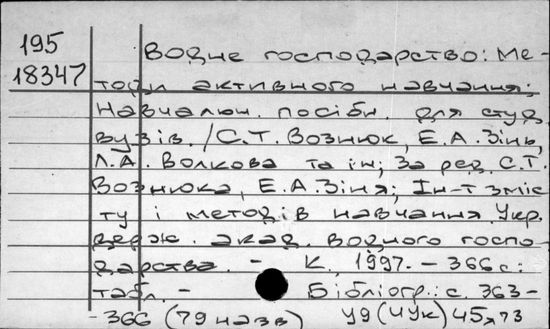 195
18347
Водне господарство: Ме-
тоди активного навчання:
Навчальн. посібн. для студ.
вузів. /С.Т. Вознюк, Е.А. Зінь,
Л.А. Волкова та ін; За ред. С.Т.
Вознюка, Е.А. Зіня; Ін-т зміс
ту і методів навчання. Укр.
держ. акад. водного госпо-
дарства. - К., 1997. - 366 с:
табл. - Бібліогр.: с. 363-
-366 (79 назв) У9(4УК)45я73